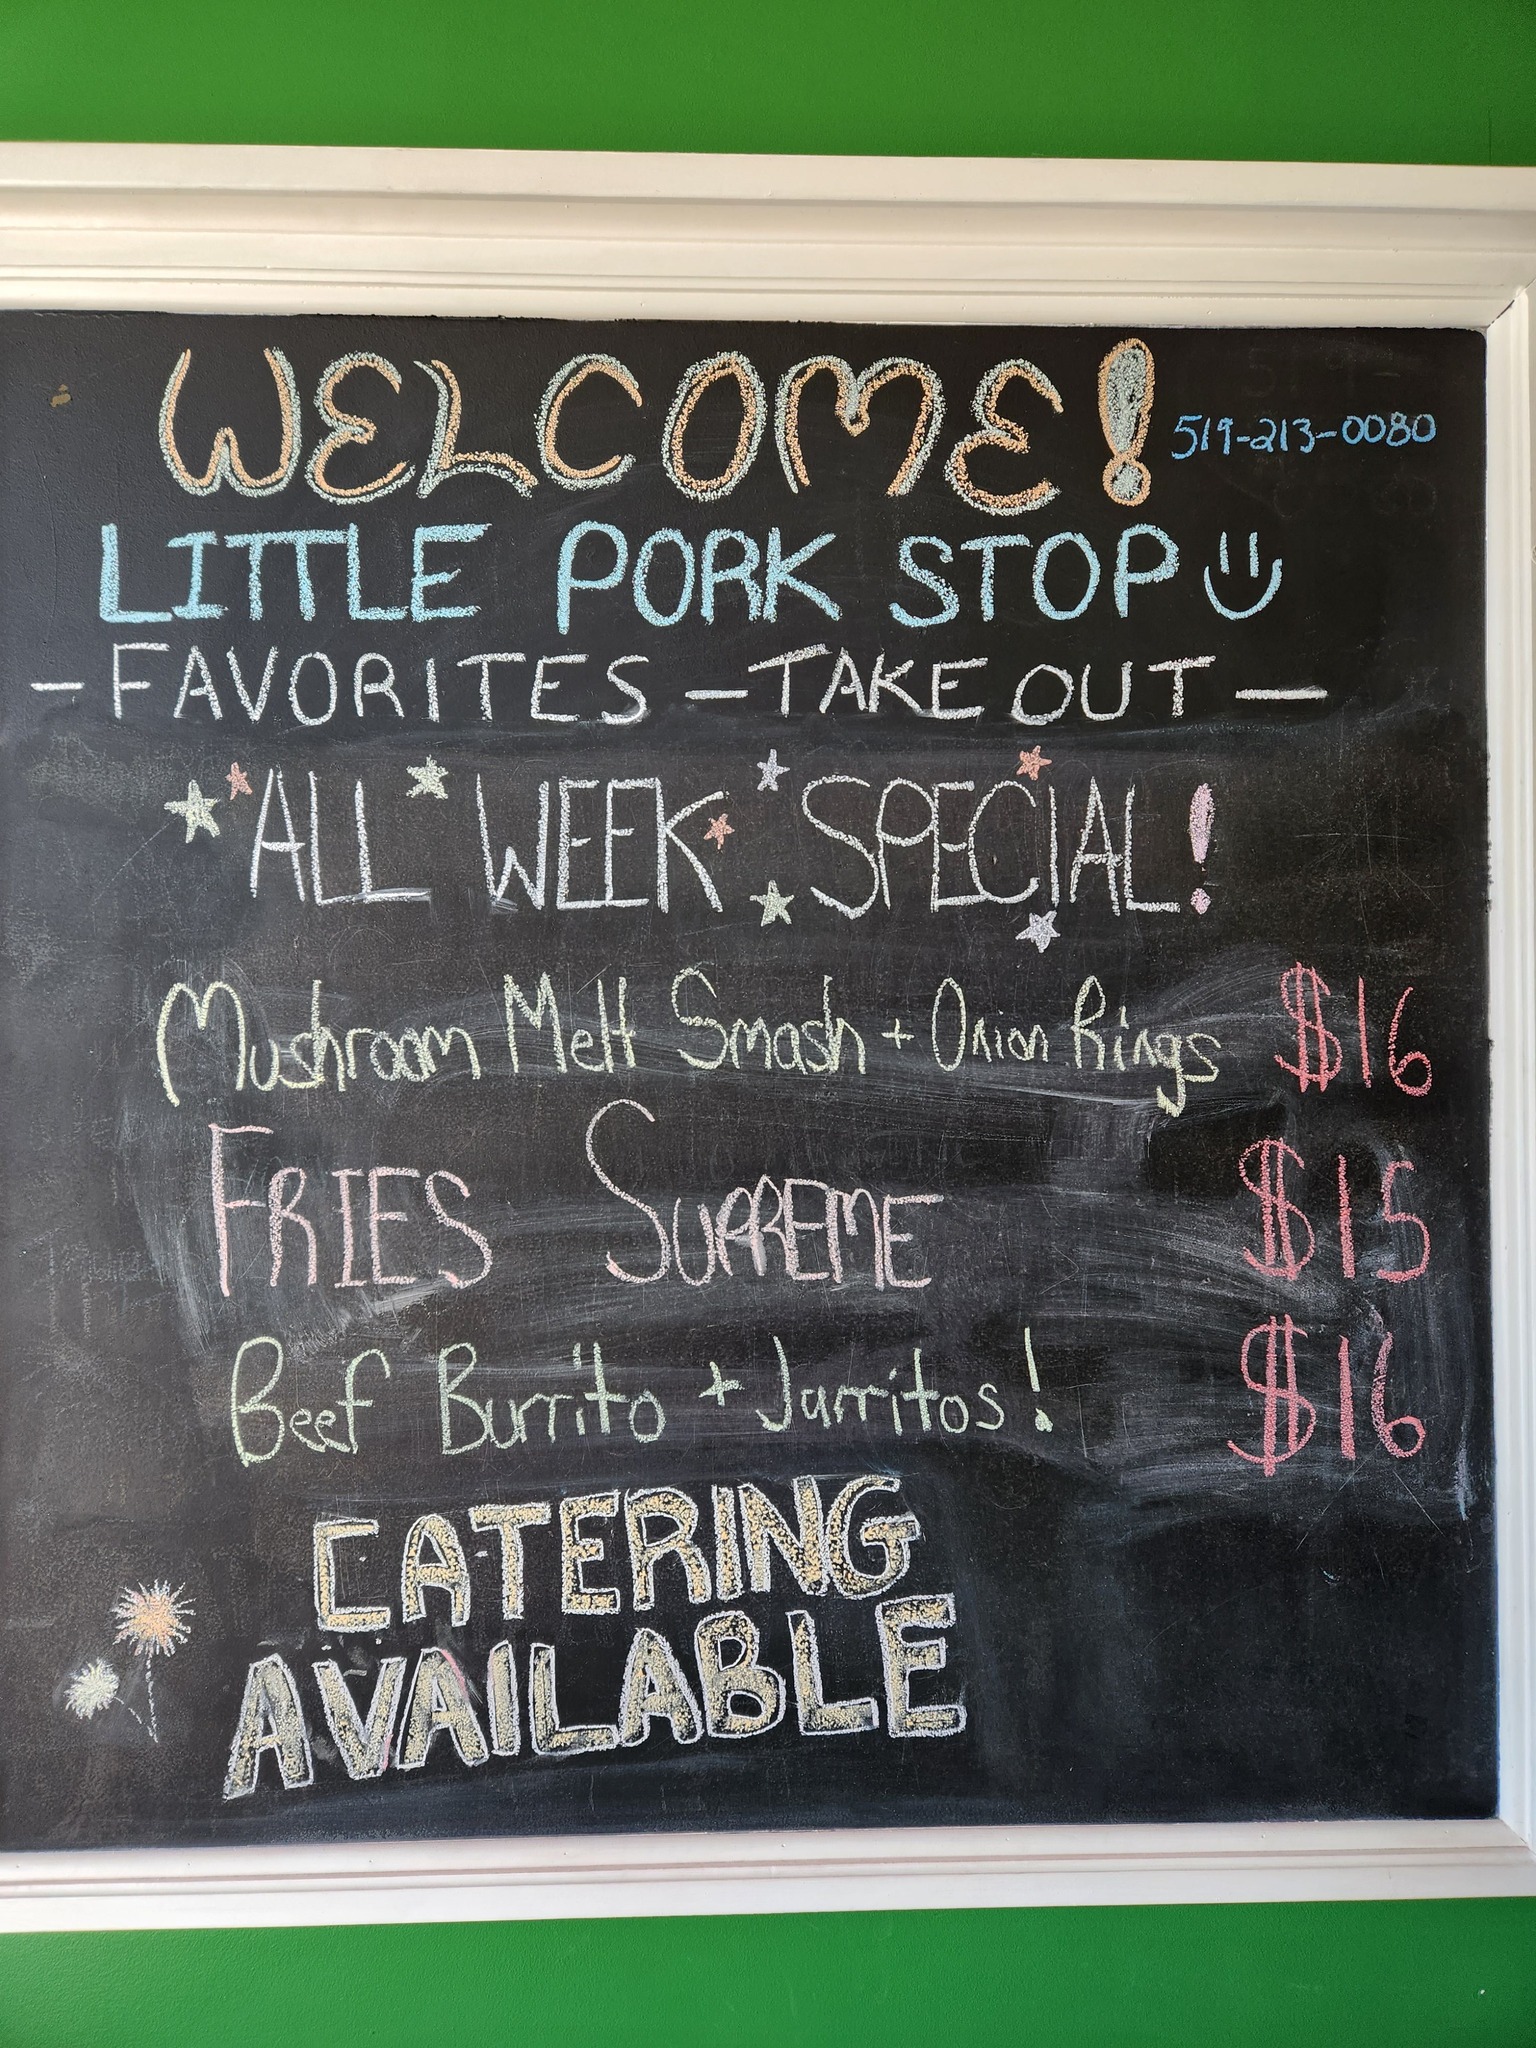 WELCOME! 519-213-0080
LITTLE PORK STOP
- FAVORITES - TAKE OUT -
ALL WEEK SPECIAL!
Mushroom Melt Smash + Onion Rings $16
FRIES SUPREME $15
Beef Burrito + Jarritos! $16
CATERING
AVAILABLE